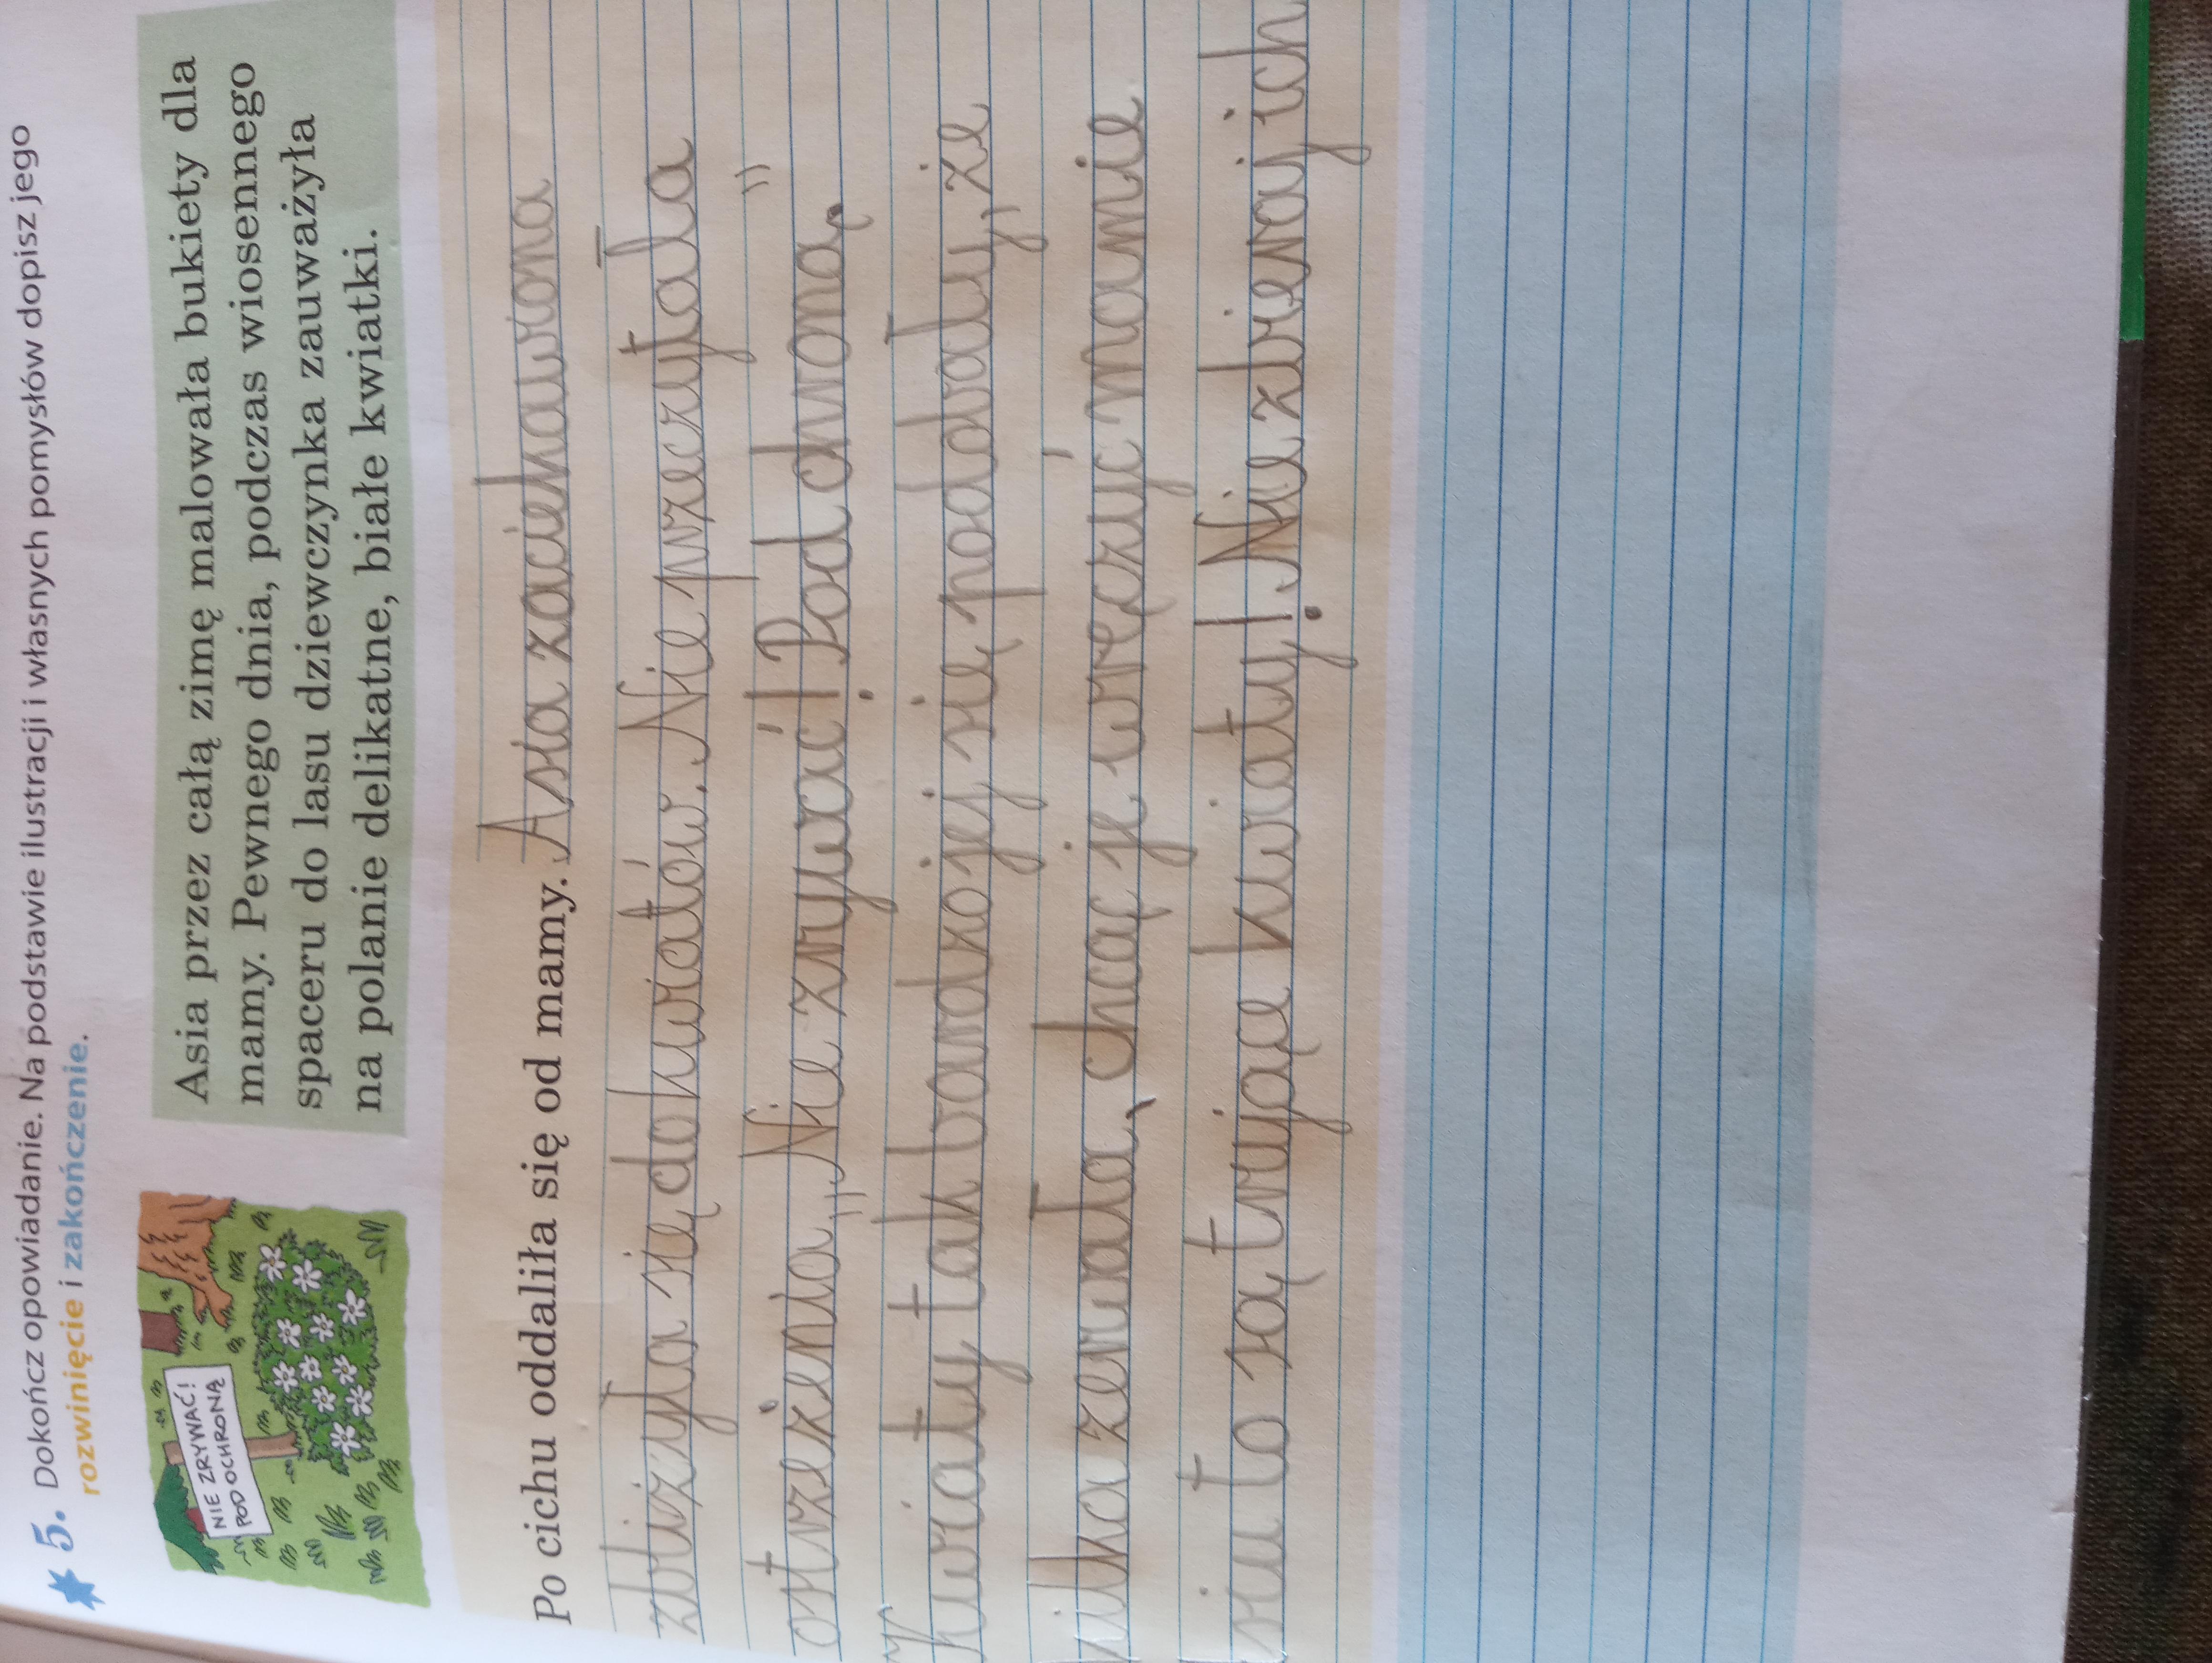 5. Dokończ opowiadanie. Na podstawie ilustracji i własnych pomysłów dopisz jego
rozwinięcie i zakończenie.
NIE ZRYWAĆ!
POD OCHRONĄ
Asia przez całą zimę malowała bukiety dla
mamy. Pewnego dnia, podczas wiosennego
spaceru do lasu dziewczynka zauważyła
na polanie delikatne, białe kwiatki.
Po cichu oddaliła się od mamy. Asia zaciekawiona
zbliżyła się do kwiatów. Nie przeczytała
ostrzeżenia „Nie zrywać! Pod chroną."
Kwiaty tak bardzo jej się podobały, że
kilka zerwała, chcąc je wręczyć mamie
są trujące kwiaty! Nie zbieraj ich